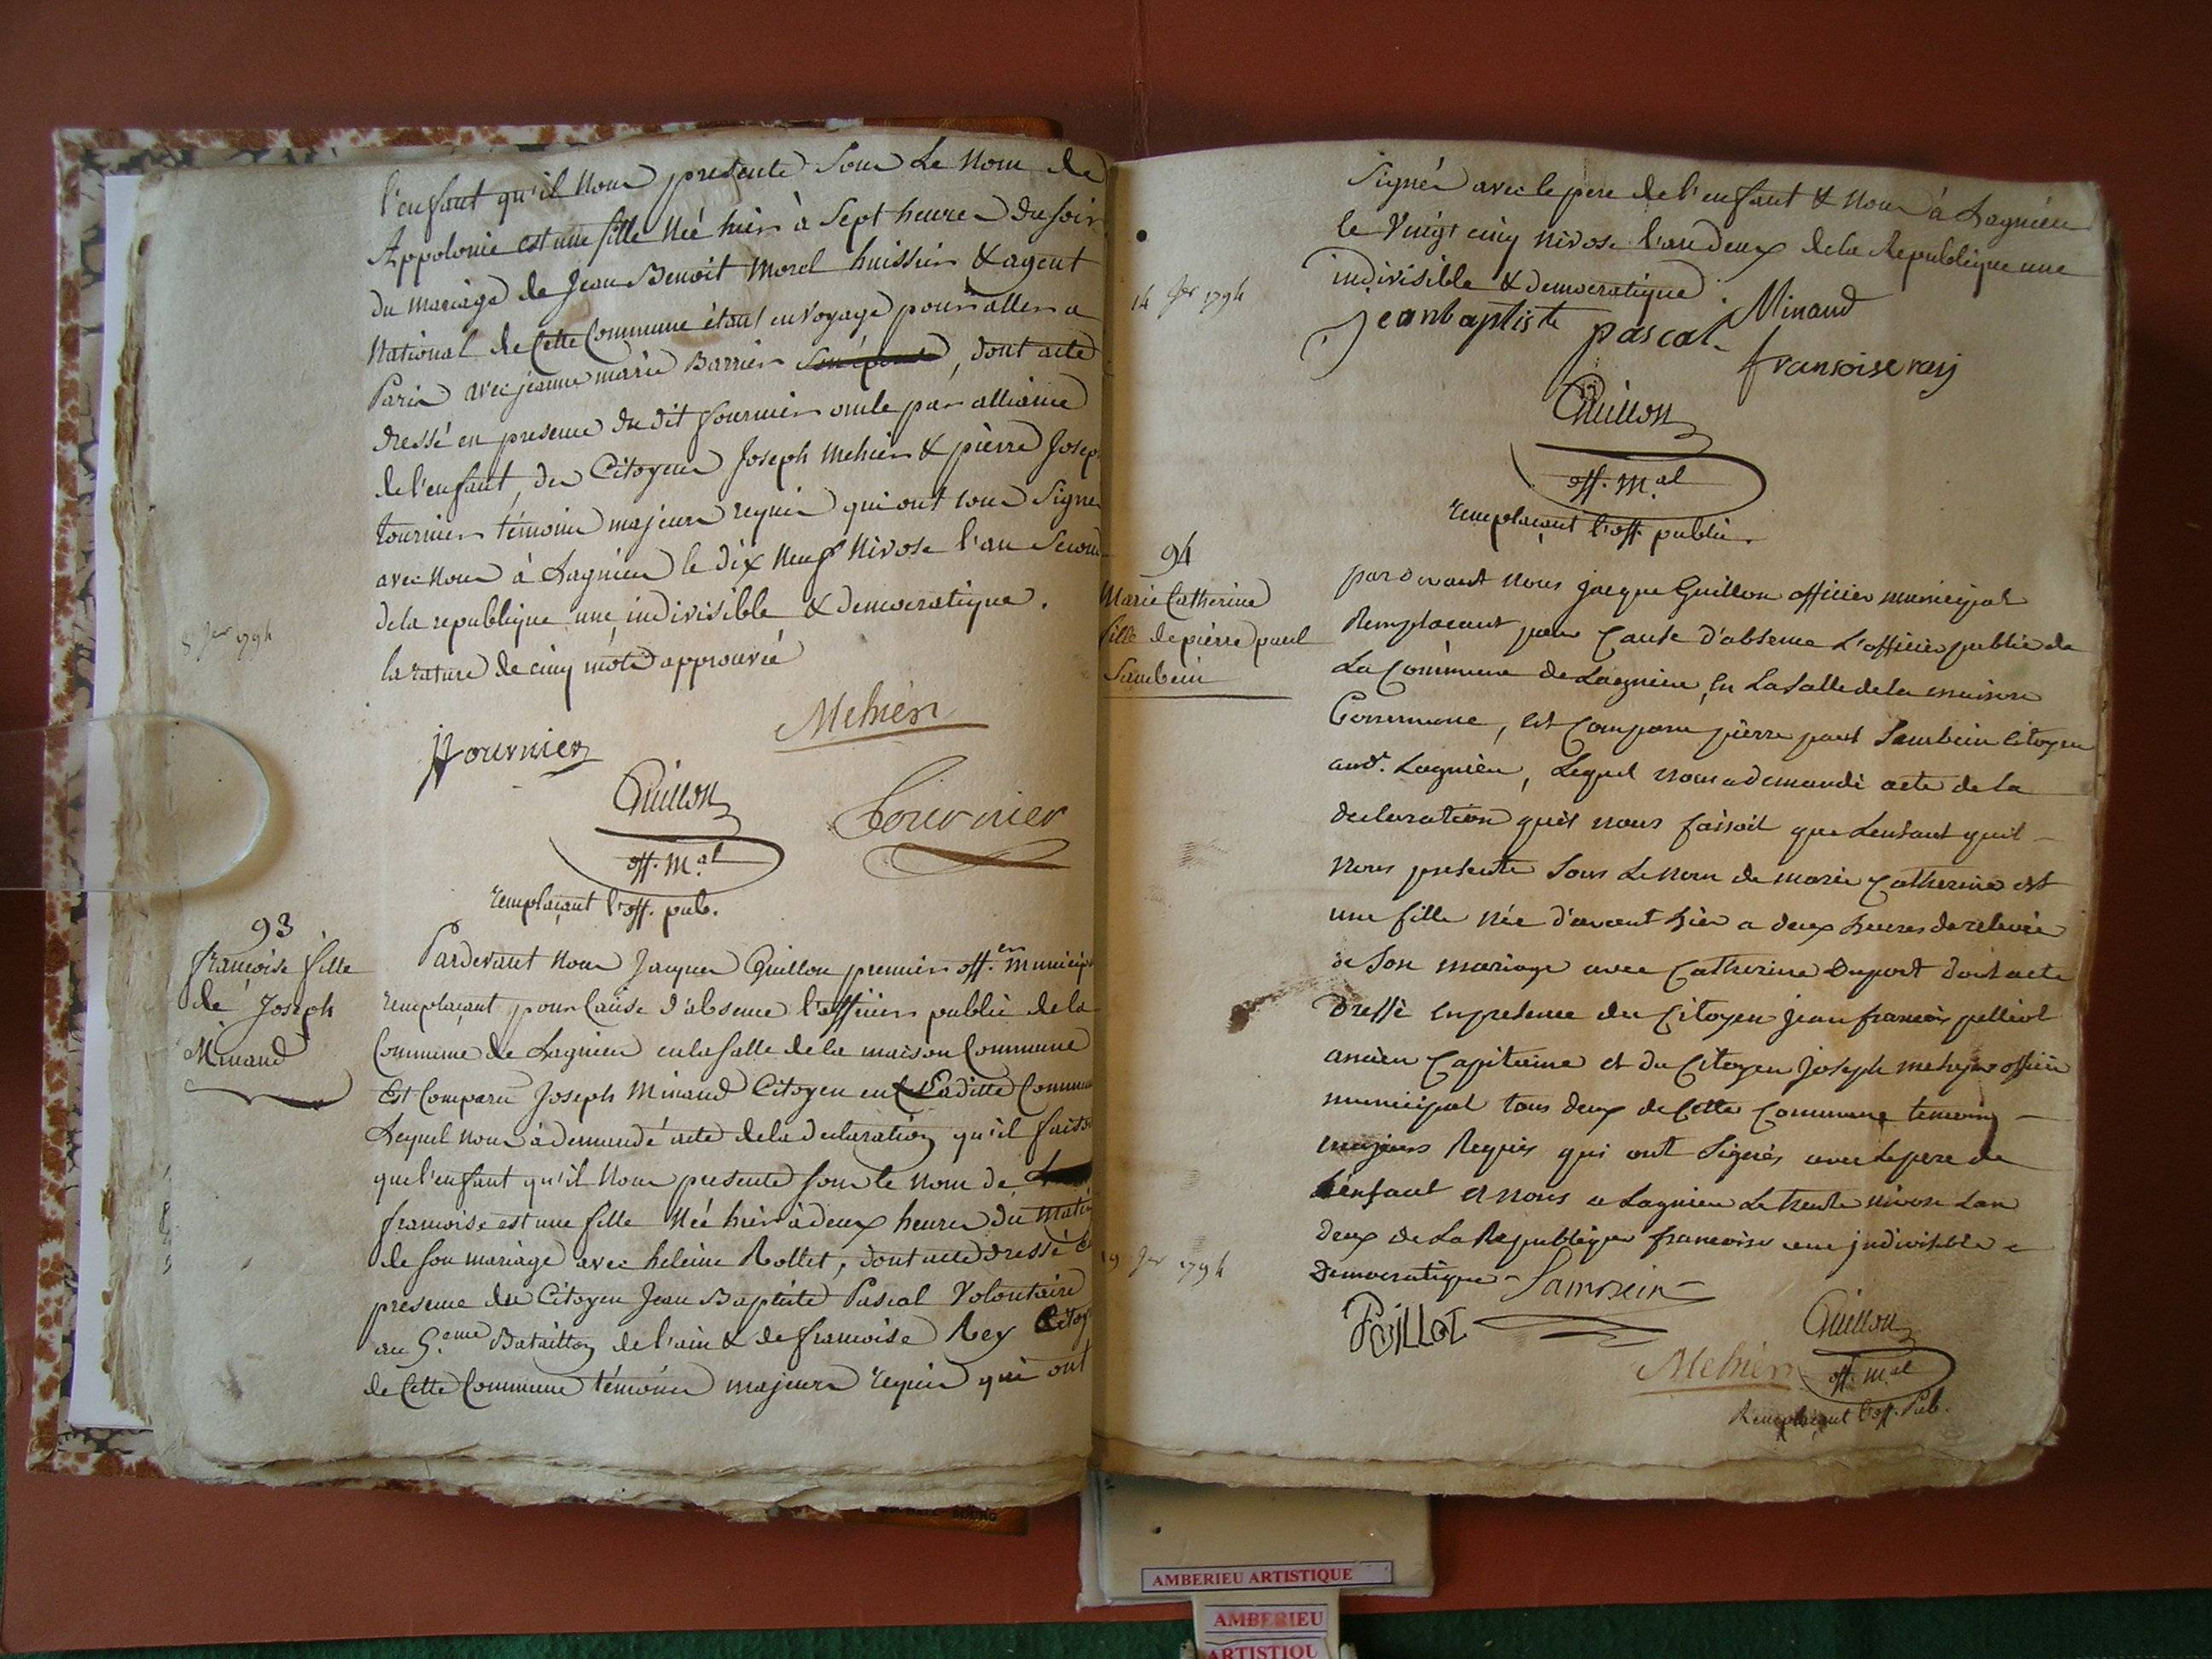 l'enfant qu'il nous presente sous Le Nom de
Appolonie est une fille Née hier à Sept heures du soir
du mariage de Jean Benoit Morel huissier & agent
National de Cette Commune étant en Voyage pour aller a
Paris avec jeanne marie Barrier , dont acte
dressé en presence du dit fournier oncle par alliance
de l'enfant, des Citoyens Joseph Mehier & pierre Josep
tournier témoins majeurs requis qui ont tous Signe
avec Nous à Lagnieu le dix Neuf Nivose l'an Second
de la republique une, indivisible & democratique.
la rature de cinq mots approuvée
8 Jer 1794
Mehier
Jfournier
Guillon
Tournier
off. M.al
remplaçant l'off. pub.
93
francoise fille
de Joseph
Minand
Pardevant Nous Jacques Guillon premier off.er municip
remplaçant pour Cause d'absence l'officier public de la
Commune de Lagnieu en la salle de la maison Commune
Est Comparu Joseph Minand Citoyen en Laditte Commun
Lequel nous à demandé acte de la declaration qu'il faiso
que l'enfant qu'il Nous presente sous le nom de
francoise est une fille Née hier à deux heures du matin
de son mariage avec heleine Rollet, dont acte dressé en
presence du Citoyen Jean Baptiste Pascal Volontaire
au 5.eme Bataillon de l'ain & de francoise Rey Citoy
de Cette Commune témoins majeurs requis qui ont
Signés avec le pere de l'enfant & Nous à Lagnieu
le Vingt cinq nivose l'an deux de la Republique une
indivisible & democratique.
14 Jer 1794
Minand
jeanbaptiste pascal
fransoise raij
Guillon
off. M.al
remplaçant l'off. public.
94
Marie Catherine
fille de pierre paul
Sambein
pardevant nous jacque Guillon officier municipal
Remplacant pour Cause d'absence L'officier public de
La Commune de Lagnieu, En La Salle de la maison
Commune, Est Comparu pierre paul Sambein Citoyen
aud. Lagnieu, Lequel nous a demandé acte de la
declaration quil nous faisoit que Lenfant quil
nous presente Sous Le nom de marie Catherine est
une fille née d'avant hier a deux heures de relevée
de Son mariage avec Catherine Duport dont acte
Dressé En presence du Citoyen jean francois pelliot
ancien Capitaine et du Citoyen Joseph mehyer officier
municipal tous deux de Cette Commune temoins
majeurs Requis qui ont Signés avec Le pere de
Lenfant et nous a Lagnieu Le trente nivose Lan
deux de La Republique francoise une jndivisible e
Democratique
19 Jer 1794
Sambein
Guillon
Mehier
off. M.al
Remplaçant l'off. Pub.
AMBERIEU ARTISTIQUE
AMBERIEU
ARTISTIQU